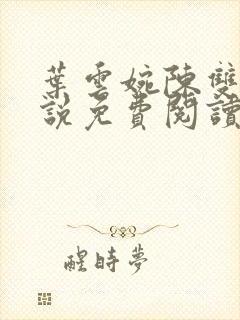 葉雲婉陳雙
說免費閱讀
醒時夢